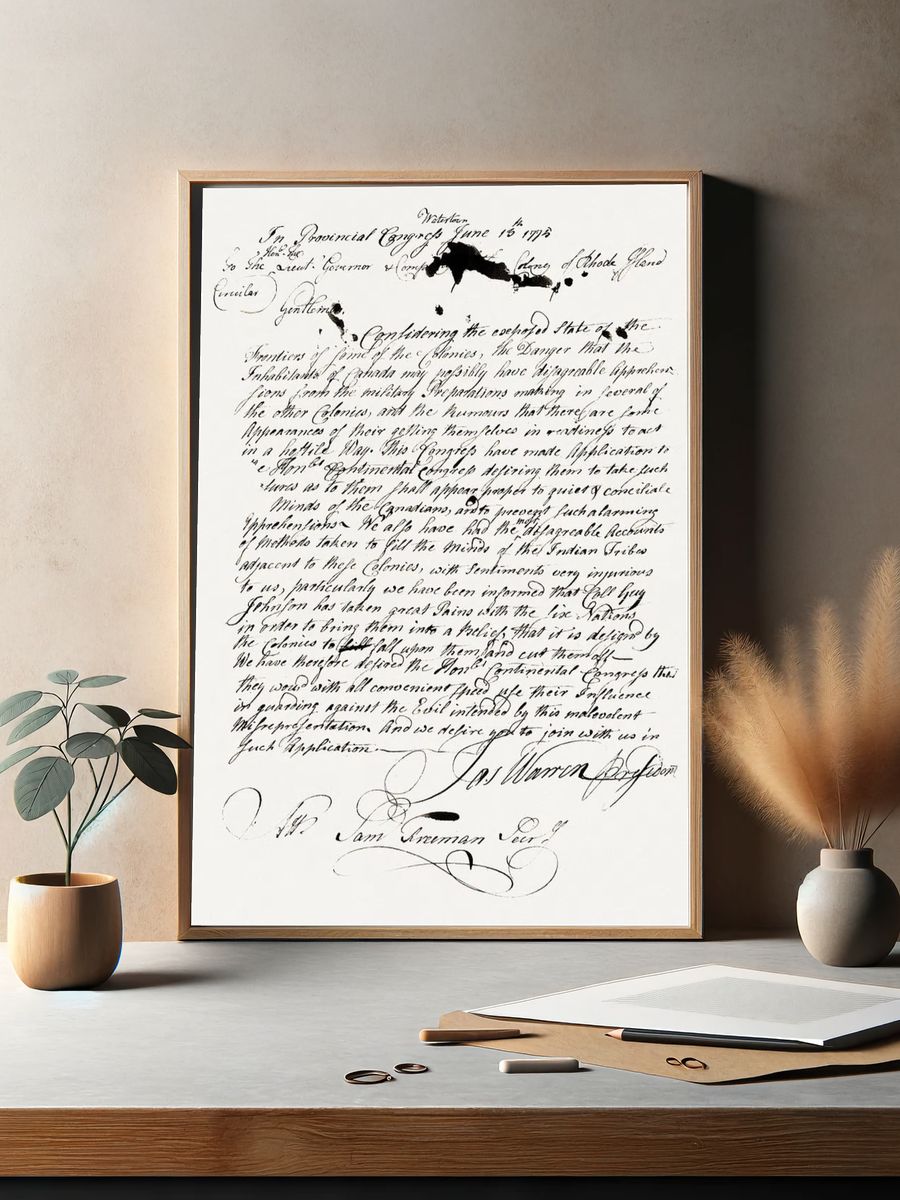 Watertown
In Provincial Congress June 13th 1775
Honble the
To The Lieut. Governor & Comp Colony of Rhode Island
Circular
Gentlemen
Considering the exposed State of the
Frontiers of some of the Colonies, the Danger that the
Inhabitants of Canada may possibly have disagreable Apprehen-
sions from the military Preparations making in several of
the other Colonies, and the Rumours that there are some
Appearances of their getting themselves in readiness to act
in a hostile Way. This Congress have made Application to
e Honble Continental Congress desiring them to take such
sures as to them shall appear proper to quiet & conciliate
Minds of the Canadians, and to prevent such alarming
Apprehensions. We also have had the most disagreable Accounts
of Methods taken to fill the Minds of the Indian Tribes
adjacent to these Colonies, with Sentiments very injurious
to us, particularly we have been informed that Coll Guy
Johnson has taken great Pains with the Six Nations
in order to bring them into a Belief, that it is design'd by
the Colonies to fall upon them, and cut them off
We have therefore desired the Honble Continental Congress that
they wou'd with all convenient speed use their Influence
in guarding against the Evil intended by this malevolent
Misrepresentation. And we desire you to join with us in
such Application.
Jas Warren Presidnt
Attt Saml Freeman Secry